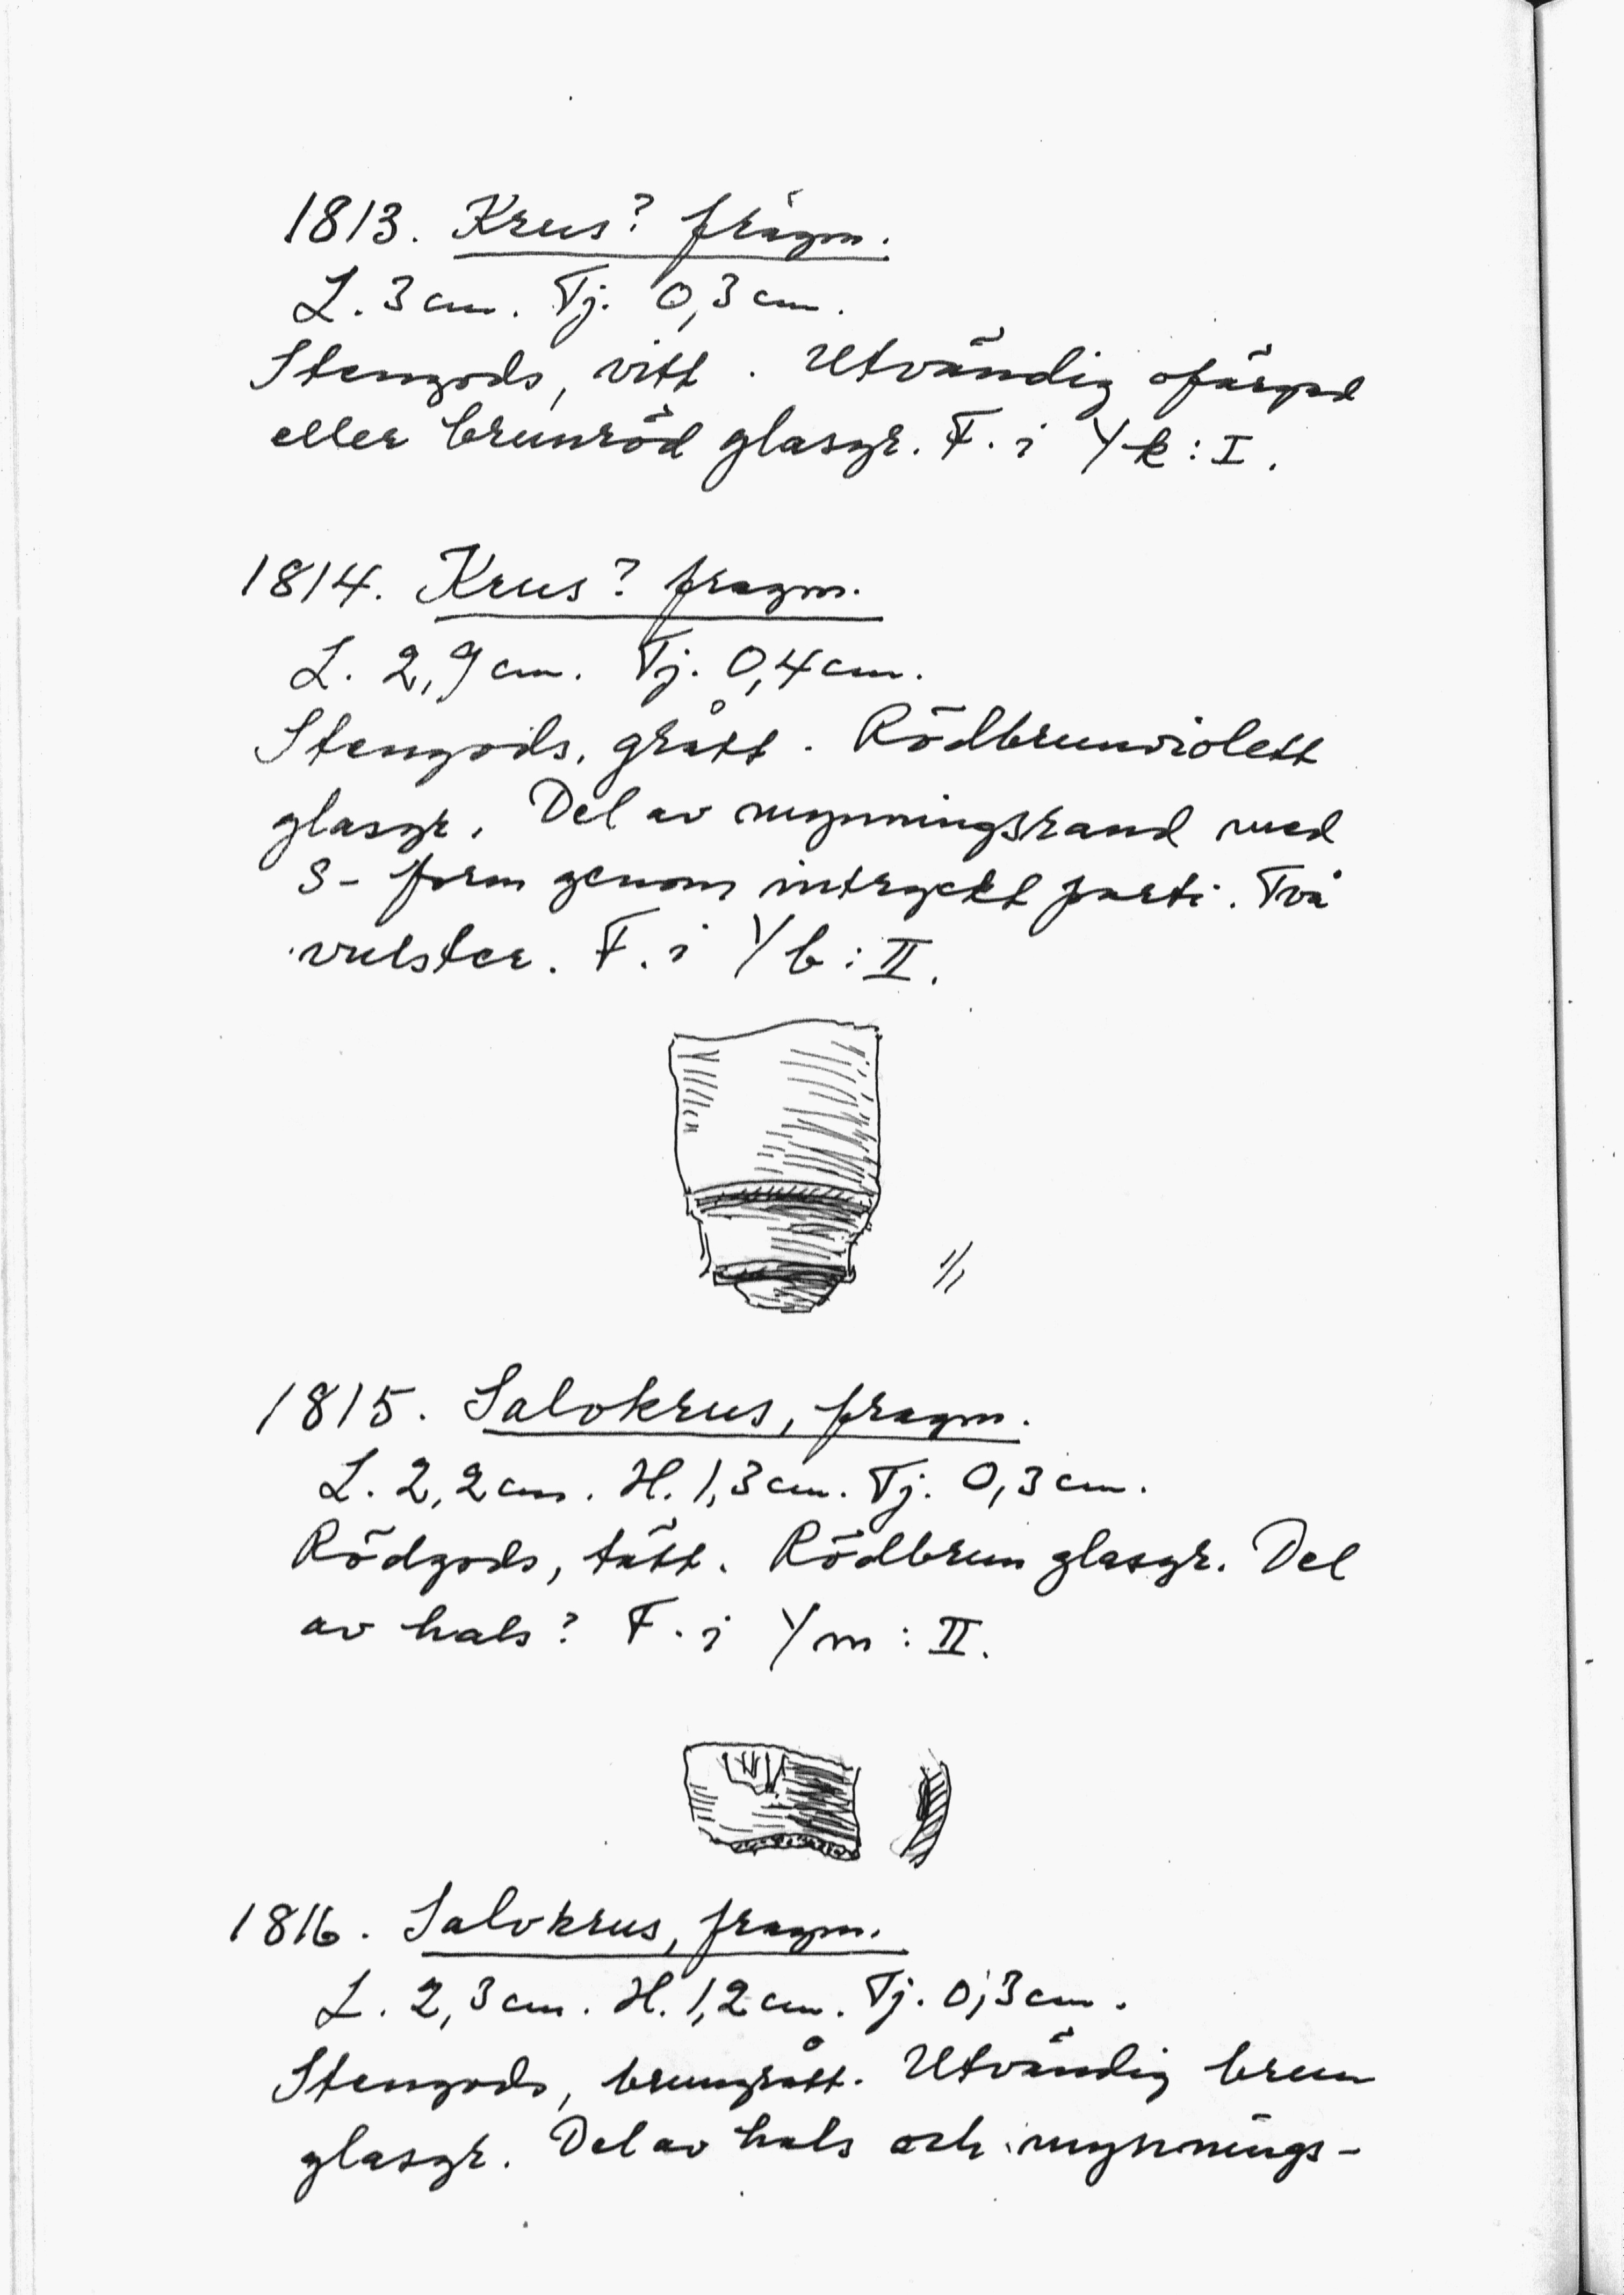 1813. Krus? fragm.
L. 3 cm. Tj. 0,3 cm.
Stengods, vitt. Utvändig ofärgad
eller brunröd glasyr. F. i Yk:I.
1814. Krus? fragm.
L. 2,9 cm. Tj. 0,4 cm.
Stengods, grått. Rödbrunviolett
glasyr. Del av mynningsrand med
S-form genom intryckt parti. Två
vulster. F. i Yb:II.
1/1
1815. Salvkrus, fragm.
L. 2,2 cm. H. 1,3 cm. Tj. 0,3 cm.
Rödgods, tätt. Rödbrun glasyr. Del
av hals? F. i Ym:II.
1816. Salvkrus, fragm.
L. 2,3 cm. H. 1,2 cm. Tj. 0,3 cm.
Stengods, brungrått. Utvändig brun
glasyr. Del av hals och mynnings-